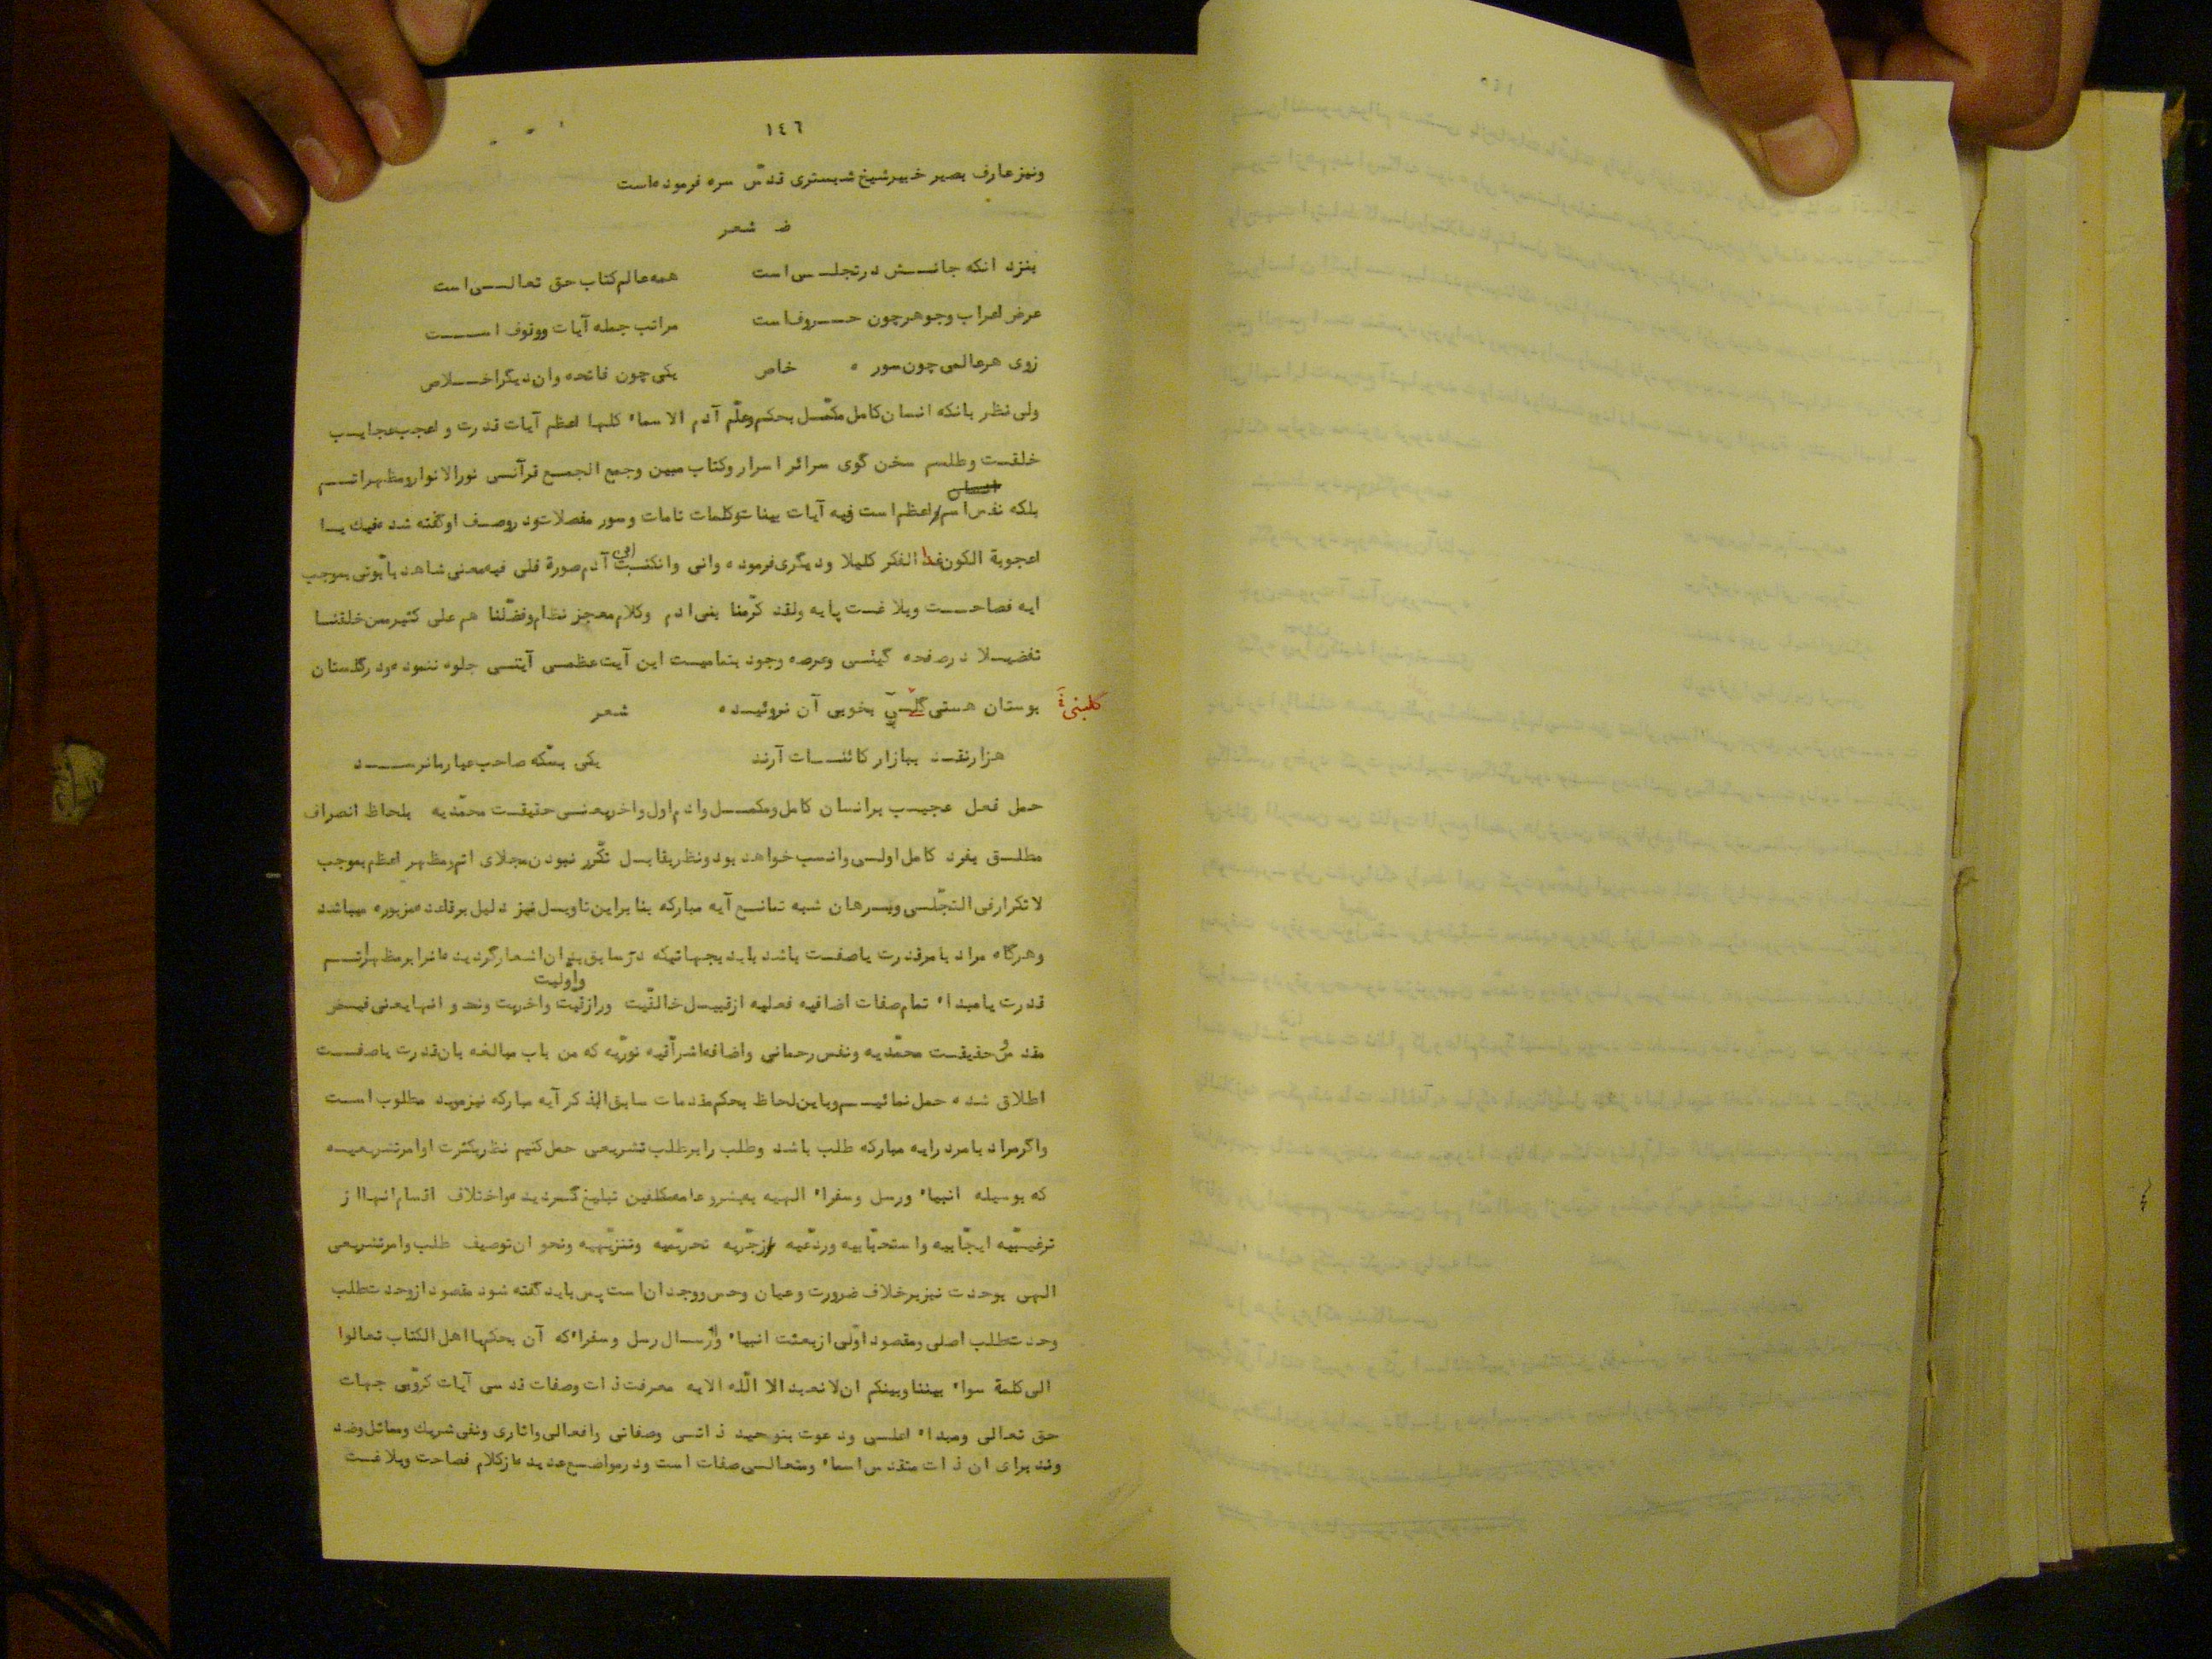 ١٤٦
ونیز عارف بصیر خبیر شیخ شبستری قدّس سره فرموده است
شعر
بنزد انکه جانـش در تجلـی است همه عالم کتاب حق تعالـی است
عرض اعراب و جوهر چون حـروف است مراتب جمله آیات و وقوف اسـت
زوی هر عالمی چون سوره خاص یکی چون فاتحه وان دیگر اخـلاص
ولی نظر بانکه انسان کامل مکمّـل بحکم وعلّم آدم الاسماء کلها اعظم آیات قدرت و اعجب عجایـب
خلقـت وطلسم سخن گوی سرائر اسرار و کتاب مبین وجمع الجمـع قرآنـی نورالانوار و مظهر اتـم
بلکه نفس اسم اعظم است فیه آیات بینات و کلمات تامات وسور مفصلات ودر وصـف او گفته شد فیك یـا
اعجوبة الکون غدا الفکر کلیلا ودیگری فرموده وانی وان کنـت ابن آدم صورة فلی فیه معنی شاهد بابّوتی بموجب
ایه فصاحـت وبلاغـت پایه ولقد کرّمنا بنی ادم وکلام معجز نظام وفضّلنا هم علی کثیر ممن خلقنـا
تفضیـلا در صفحه گیتـی وعرصه وجود بتمامیـت این آیت عظمـی آیتـی جلوه ننموده ودر گلستان
بوستان هستی بخوبی آن نروئیـده شعر
گلبنی
هزار نقـد ببازار کائنـات آرند یکی بسکّه صاحب عیار ما نرسـد
حمل فعل عجیـب بر انسان کامل ومکمـل وادم اول واخر یعنـی حقیقـت محمّدیه بلحاظ انصراف
مطلـق بفرد کامل اولـی وانسب خواهد بود ونظر بقابـل تکّرر نبودن مجلای اتم ومظهر اعظم بموجب
لاتکرار فی التجلّـی وبـرهان شبه تمانـع آیه مبارکه بنا براین تاویـل نیز دلیل بر قاعده مزبوره میباشد
وهرگاه مراد بامر قدرت یا صفـت باشد باید بجهاتیکه در سابق بدان اشعار گردیده انرا بر مظهر اتـم
واوّلیت
قدرت یا مبداء تمام صفات اضافیه فعلیه از قبیـل خالقّیت ورازقیّت واخریت ونحو انها یعنی فیـض
مقدس وحقیقـت محمّدیه ونفس رحمانی واضافه اشراقیه نورّیه که من باب مبالغه بان قدرت یا صفـت
اطلاق شده حمل نمائیـم وباین لحاظ بحکم مقدمات سابق الذکر آیه مبارکه نیز موید مطلوب اسـت
واگر مراد بامر در ایه مبارکه طلب باشد وطلب را بر طلب تشریعی حمل کنیم نظر بکثرت اوامر تشریعیـه
که بوسیله انبیاء ورسل وسفراء الهیه به بشر وعامه مکلفین تبلیغ گـردیده واختلاف اقسام انها از
ترغیبیّه ایجابّیه واستحبابّیه وردعّیه زجرّیه تحریمّیه وتنزیهّیه ونحو ان توصیف طلب وامر تشریعی
الهی بوحدت نیز بر خلاف ضرورت وعیان وحس ووجدان است پس باید گفته شود مقصود از وحدت طلب
وحدت طلب اصلی ومقصود اوّلی از بعثت انبیاء وارسـال رسل وسفراء که آن بحکم یا اهل الکتاب تعالوا
الی کلمة سواء بیننا وبینکم ان لا نعبد الا اللّه الایه معرفت ذات وصفات قدسی آیات کرّوبی جهات
حق تعالی ومبداء اعلـی ودعوت بتوحید ذاتـی وصفاتی وافعالی واثاری ونفی شریك ومماثل وضد
وند برای ان ذات متقدس اسماء ومتعالـی صفات است ودر مواضـع عدیده از کلام فصاحت وبلاغـت